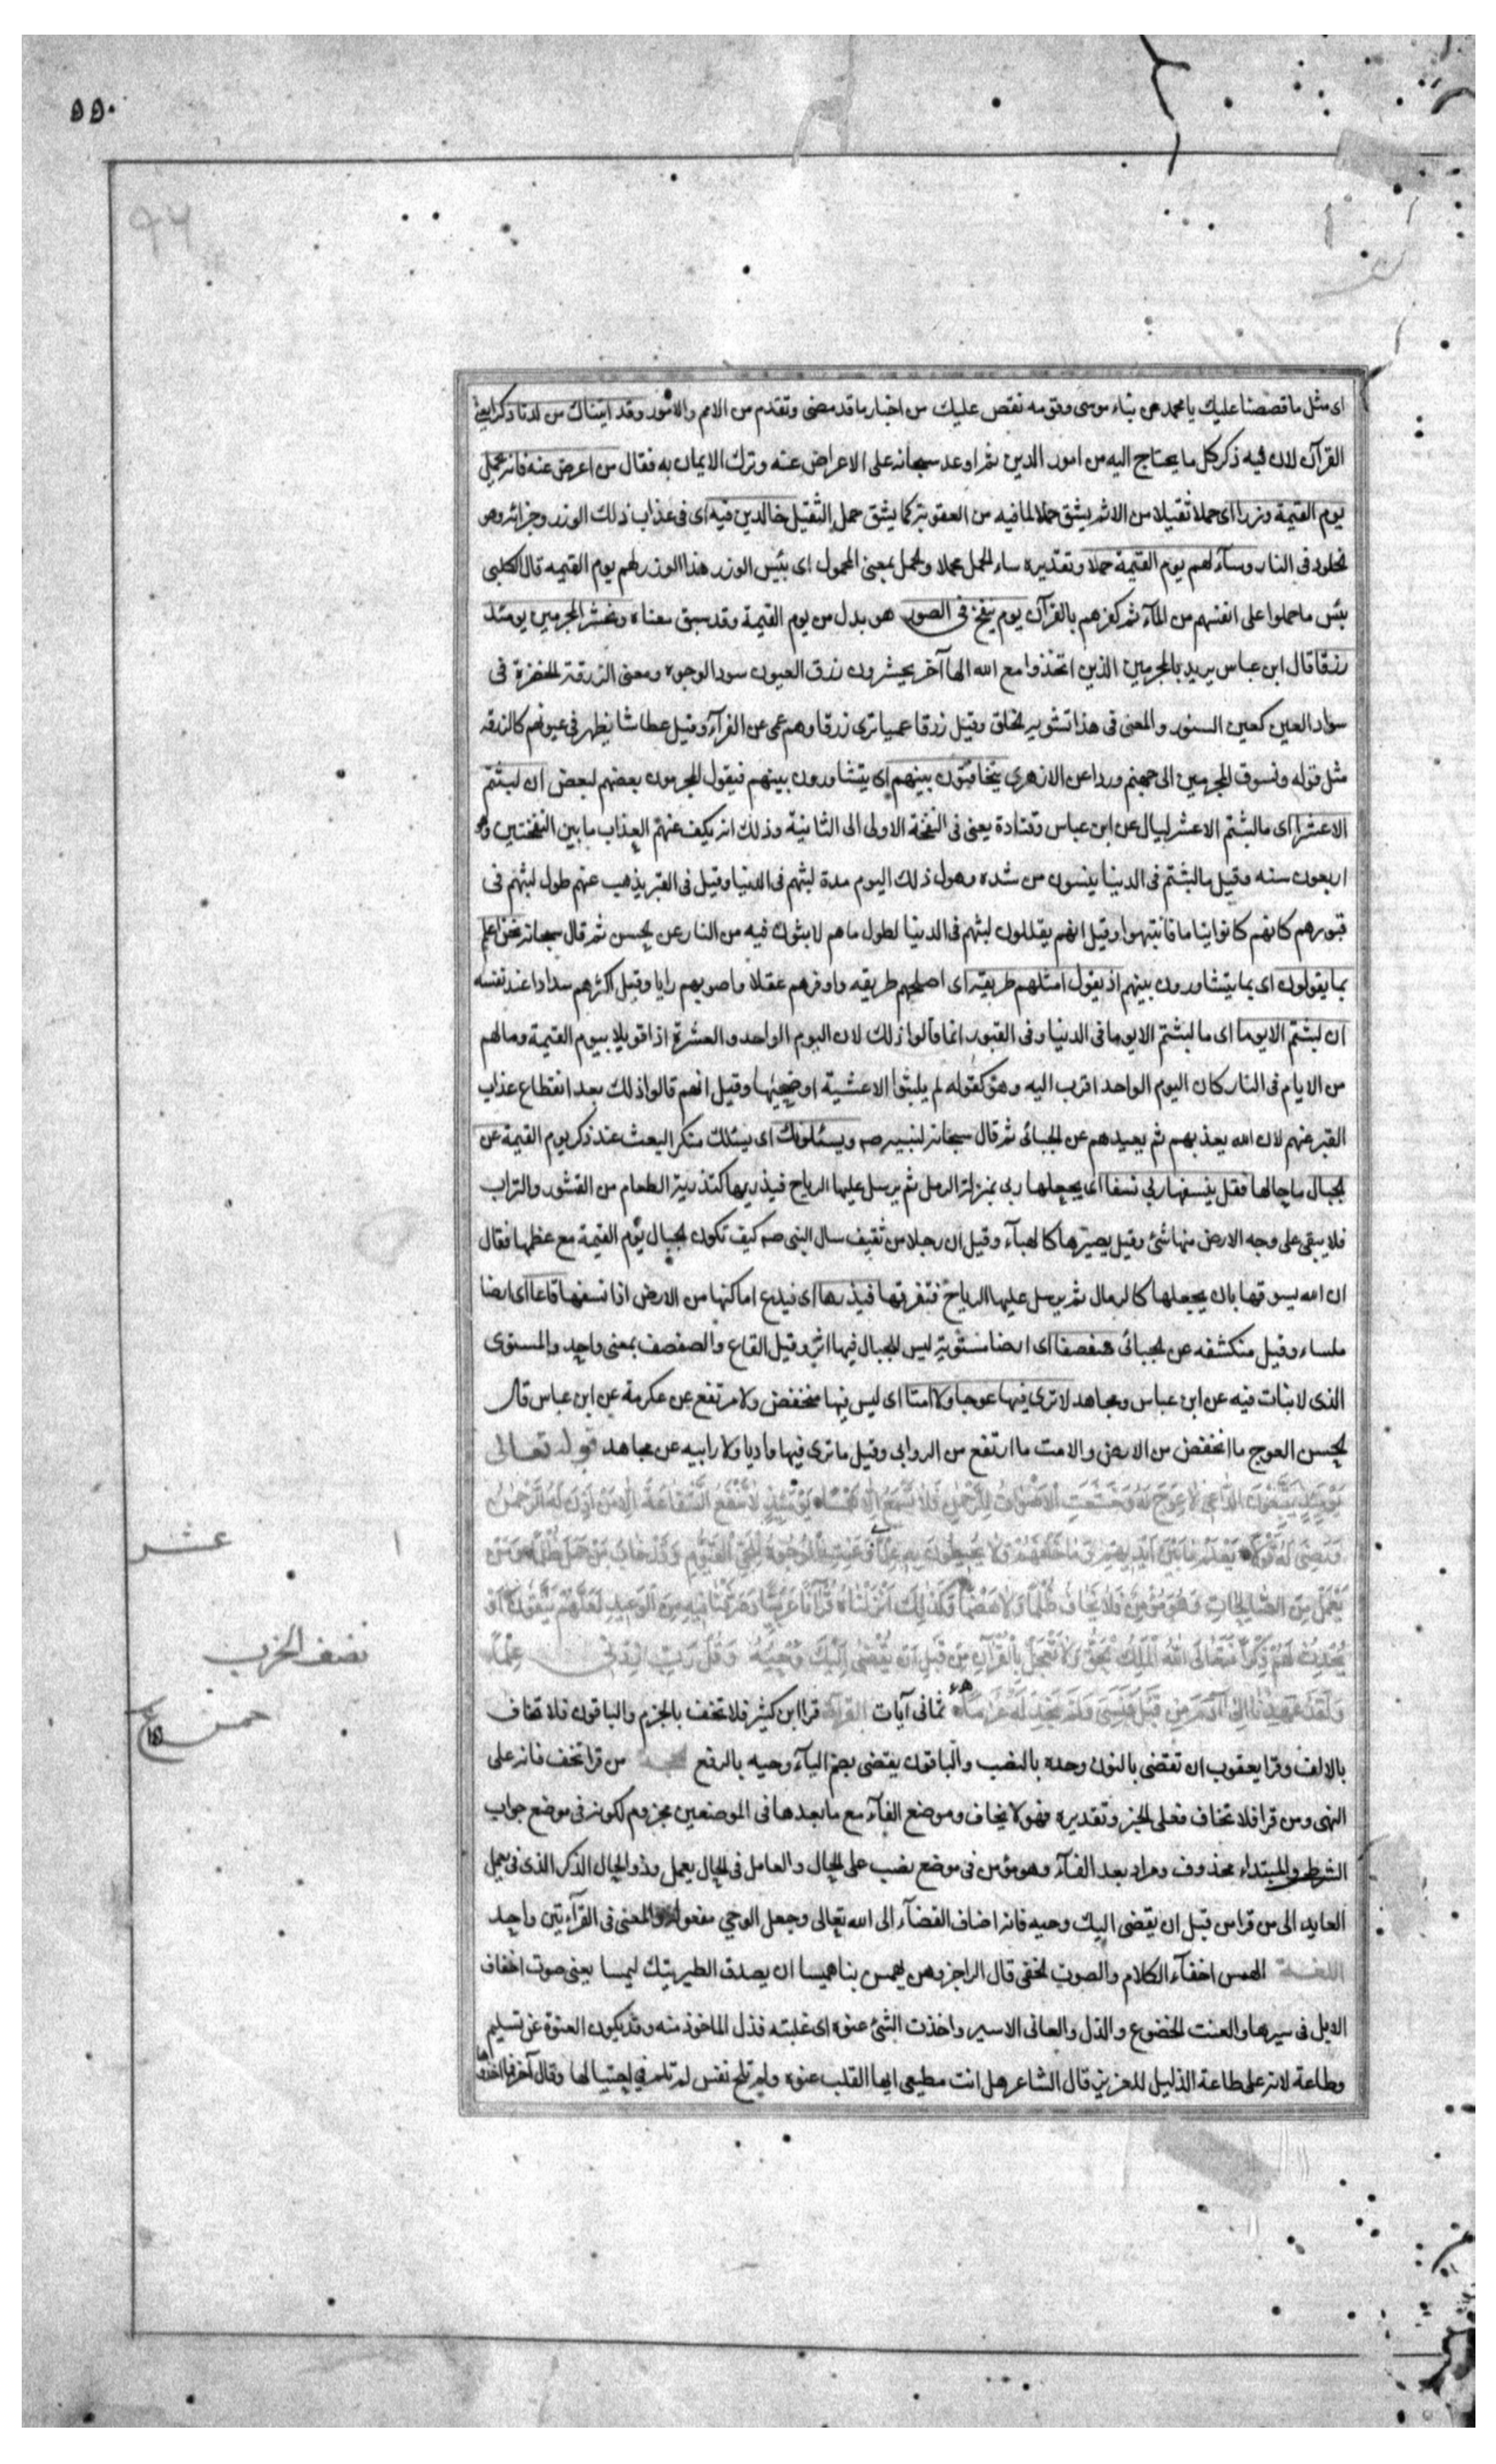 ۵۵۰
۹۴
اى مثل ما قصصنا عليك يا محمد من نباء موسى وقومه نقص عليك من اخبار ما قد مضى وتقدم من الامم والامور وقد اتيناك من لدنا ذكرا يعنى
القرآن لان فيه ذكر كل ما يحتاج اليه من امور الدين ثم اوعد سبحانه على الاعراض عنه وترك الايمان به فقال من اعرض عنه فانه يحمل
يوم القيمة وزرا اى حملا ثقيلا من الاثم يشق حملا لما فيه من العقوبة كما يشق حمل الثقيل خالدين فيه اى فى عذاب ذلك الوزر وجزائه وهو
لخلود فى النار وسآء لهم يوم القيمة حملا وتقديره ساء الحمل حملا ولحمل بمعنى المحمول اى بئس الوزر هذا الوزر لهم يوم القيمه قال الكلبى
بئس ما حملوا على انفسهم من المآثم كفرهم بالقرآن يوم ينفخ فى الصور هو بدل من يوم القيمة وقد سبق معناه ونحشر المجرمين يومئذ
زرقا قال ابن عباس يريد بالمجرمين الذين اتخذوا مع الله الها آخر يحشرون زرق العيون سود الوجوه ومعنى الزرقة الخضرة فى
سواد العين كعين السنور والمعنى فى هذا تشويه لخلق وقيل زرقا عميا ترى زرقا وهم عمى عن الفرآء وقيل عطاشا يظهر فى عيونهم كالزرقه
مثل قوله ونسوق المجرمين الى جهنم وردا عن الازهرى يتخافتون بينهم اى يتشاورون بينهم فيقول المجرمون بعضهم لبعض ان لبثتم
الاعشرا اى ما لبثتم الا عشر ليال عن ابن عباس وقتادة يعنى فى النفخة الاولى الى الثانية وذلك انه يكف عنهم العذاب ما بين النفختين وهو
اربعون سنه وقيل ما لبثتم فى الدنيا ينسون من شده وهول ذلك اليوم مدة لبثهم فى الدنيا وقيل فى القبر يذهب عنهم طول لبثهم فى
قبورهم كانهم كانوا نياما فانتبهوا وقيل انهم يقللون لبثهم فى الدنيا لطول ما هم لابثون فيه من النار عن لحسن ثم قال سبحانه نحن اعلم
بما يقولون اى بما يتشاورون بينهم اذ يقول امثلهم طريقة اى اصلحهم طريقه واوفرهم عقلا واصوبهم رايا وقيل اكثرهم سدادا عند نفسه
ان لبثتم الا يوما اى ما لبثتم الا يوما فى الدنيا وفى القبور انما قالوا ذلك لان اليوم الواحد والعشرة اذا قوبلا بيوم القيمة وما لهم
من الايام فى النار كان اليوم الواحد اقرب اليه وهو كقوله لم يلبثوا الا عشية او ضحيها وقيل انهم قالوا ذلك بعد انقطاع عذاب
القبر عنهم لان الله يعذبهم ثم يعيدهم عن لجبائى ثم قال سبحانه لنبيه صم ويسئلونك اى يسئلك منكر البعث عند ذكر يوم القيمة عن
لجبال ما حالها فقل ينسفها ربى نسفا اى يجعلها ربى بمنزلة الرمل ثم يرسل عليها الرياح فيذريها كتذرية الطعام من القشور والتراب
فلا يبقى على وجه الارض منها شئ وقيل يصيرها كالهبآء وقيل ان رجلا من ثقيف سال النبى صم كيف تكون لجبال يوم القيمة مع عظمها فقال
ان الله يسوقها بان يجعلها كالرمال ثم يرسل عليها الرياح فتفرقها فيذرها اى فيدع اماكنها من الارض اذا نسفها قاعا اى ارضا
ملساء وقيل منكشفه عن لجبائى صفصفا اى ارضا مستوية ليس للجبال فيها اثر وقيل القاع والصفصف بمعنى واحد والمستوى
الذى لا نبات فيه عن ابن عباس ومجاهد لا ترى فيها عوجا ولا امتا اى ليس فيها منخفض ولا مرتفع عن عكرمة عن ابن عباس قال
لحسن العوج ما انخفض من الارض والامت ما ارتفع من الروابى وقيل ما ترى فيها واديا ولا رابيه عن مجاهد قوله تعالى
يَوْمَئِذٍ يَتَّبِعُونَ الدَّاعِىَ لا عِوَجَ لَهُ وَخَشَعَتِ الْأَصْوَاتُ لِلرَّحْمٰنِ فَلا تَسْمَعُ إِلَّا هَمْسًا يَوْمَئِذٍ لا تَنْفَعُ الشَّفَاعَةُ إِلَّا مَنْ أَذِنَ لَهُ الرَّحْمٰنُ
وَرَضِىَ لَهُ قَوْلًا يَعْلَمُ مَا بَيْنَ أَيْدِيهِمْ وَمَا خَلْفَهُمْ وَلا يُحِيطُونَ بِهِ عِلْمًا وَعَنَتِ الْوُجُوهُ لِلْحَىِّ الْقَيُّومِ وَقَدْ خَابَ مَنْ حَمَلَ ظُلْمًا وَمَنْ
يَعْمَلْ مِنَ الصَّالِحَاتِ وَهُوَ مُؤْمِنٌ فَلا يَخَافُ ظُلْمًا وَلا هَضْمًا وَكَذٰلِكَ أَنْزَلْنَاهُ قُرْآنًا عَرَبِيًّا وَصَرَّفْنَا فِيهِ مِنَ الْوَعِيدِ لَعَلَّهُمْ يَتَّقُونَ أَوْ
يُحْدِثُ لَهُمْ ذِكْرًا فَتَعَالَى اللهُ الْمَلِكُ الْحَقُّ وَلا تَعْجَلْ بِالْقُرْآنِ مِنْ قَبْلِ أَنْ يُقْضٰى إِلَيْكَ وَحْيُهُ وَقُلْ رَبِّ زِدْنِى عِلْمًا
وَلَقَدْ عَهِدْنَا إِلٰى آدَمَ مِنْ قَبْلُ فَنَسِىَ وَلَمْ نَجِدْ لَهُ عَزْمًا ثمانى آيات القراءة قرا ابن كثير فلا تخف بالجزم والباقون فلا تخاف
بالالف وقرا يعقوب ان نقضى بالنون وحيه بالنصب والباقون يقضى بضم اليآء وحيه بالرفع الحجة من قرا تخف فانه على
النهى ومن قرا فلا تخاف فعلى الخبر وتقديره فهو لا يخاف وموضع الفآء مع ما بعدها فى الموضعين مجزوم لكونه فى موضع جواب
الشرط والمبتداء محذوف ومراد بعد الفآء وهو مؤمن فى موضع نصب على الحال والعامل فى الحال يعمل وذو الحال الذكر الذى فى يعمل
العايد الى من قرا من قبل ان يقضى اليك وحيه فانه اضاف القضآء الى الله تعالى وجعل الوحى مفعولا والمعنى فى القرآءتين واحد
اللغة الهمس اخفآء الكلام والصوت لخفى قال الراجز وهن يهمسن بنا هميسا ان يصدق الطير ننك لميسا يعنى صوت اخفاف
الابل فى سيرها والعنت لخضوع والذل والعانى الاسير واخذت الشئ عنوه اى غلبته فذل الماخوذ منه وقد يكون العنوة عن تسليم
وطاعة لانه على طاعة الذليل للعزيز قال الشاعر هل انت مطيعى ايها القلب عنوه ولم تلح نفس لم تلم فى احتيالها وقال آخر فما اخذوها
عشر
نصف الحزب
خمس